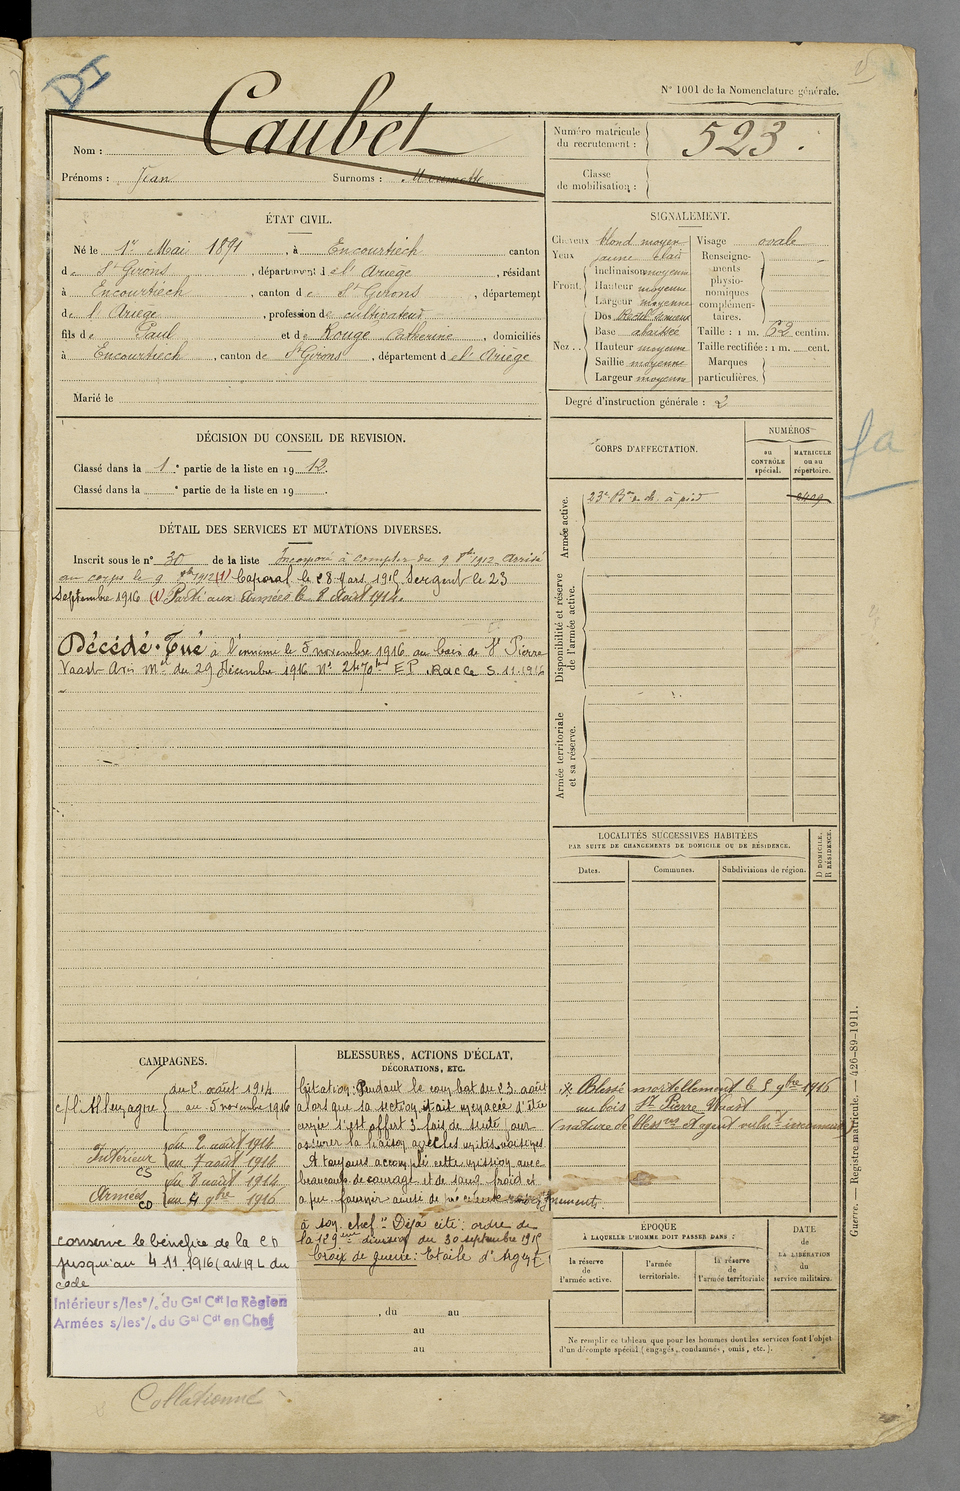 DI
N° 1001 de la Nomenclature générale.
Nom : Caubet
Prénoms : Jean Surnoms :
Numéro matricule du recrutement : 523.
Classe de mobilisation :
ÉTAT CIVIL.
Né le 1er Mai 1891, à Encourtiech canton
de St Girons, département de l'Ariège, résidant
à Encourtiech, canton de St Girons, département
de l'Ariège, profession de cultivateur
fils de Paul et de Rouge Catherine, domiciliés
à Encourtiech, canton de St Girons, département de l'Ariège
Marié le
SIGNALEMENT.
Cheveux blond moyen
Yeux jaune clair
Front. Inclinaison moyenne
Hauteur moyenne
Largeur moyenne
Nez. Dos
Base abaissée
Hauteur moyenne
Saillie moyenne
Largeur moyenne
Visage ovale
Renseignements physionomiques complémentaires.
Taille : 1 m. 62 centim.
Taille rectifiée : 1 m. cent.
Marques particulières.
Degré d'instruction générale : 2
DÉCISION DU CONSEIL DE REVISION.
Classé dans la 1e partie de la liste en 1912.
Classé dans la e partie de la liste en 19 .
DÉTAIL DES SERVICES ET MUTATIONS DIVERSES.
Inscrit sous le n° 30 de la liste Incorporé à compter du 9 8bre 1912 Arrivé
au corps le 9 8bre 1912 (1) Caporal le 28 Mars 1915, Sergent le 23
Septembre 1916 (1) Parti aux Armées le 8 Août 1914.
Décédé. Tué à l'ennemi le 5 novembre 1916 au bois de St Pierre
Vaast Avis Mel du 29 Décembre 1916 N° EP. Racce S. 11.1916
CORPS D'AFFECTATION.
NUMÉROS
au CONTRÔLE spécial.
MATRICULE ou au répertoire.
Armée active.
23e Bon de ch. à pied
Disponibilité et réserve de l'armée active.
Armée territoriale et sa réserve.
fa
LOCALITÉS SUCCESSIVES HABITÉES
PAR SUITE DE CHANGEMENTS DE DOMICILE OU DE RÉSIDENCE.
Dates.
Communes.
Subdivisions de région.
D DOMICILE. R RÉSIDENCE.
CAMPAGNES.
c/ l'Allemagne du 2 août 1914
au 5 novembre 1916
Intérieur CS du 2 août 1914
au 7 août 1914
Armées CD du 8 août 1914
au 4 9bre 1916
conserve le bénéfice de la CD
jusqu'au 4 11.1916 (art 19 L du
code
Intérieur s/les °/. du Gal Cdt la Région
Armées s/les °/. du Gal Cdt en Chef
BLESSURES, ACTIONS D'ÉCLAT,
DÉCORATIONS, ETC.
Citation : Pendant le combat du 23 août
alors que sa section était menacée d'être
s'est offert 3 fois de suite pour
assurer la liaison avec les unités voisines
A toujours accompli cette mission avec
beaucoup de courage et de sang froid et
a pu fournir ainsi de précieux renseignements
à son chef " Déjà cité : ordre de
la 129ème division du 30 septembre 1915
Croix de guerre : Etoile d'Argent
, du au
au
au
* Blessé mortellement le 5 9bre 1916
au bois St Pierre Vaast
(nature de blessure et agent vulnt inconnus)
ÉPOQUE
À LAQUELLE L'HOMME DOIT PASSER DANS :
la réserve de l'armée active.
l'armée territoriale.
la réserve de l'armée territoriale
DATE de LA LIBÉRATION du service militaire.
Ne remplir ce tableau que pour les hommes dont les services font l'objet
d'un décompte spécial (engagés, condamnés, omis, etc.).
Guerre. — Registre matricule. — 426-89-1911.
Collationné